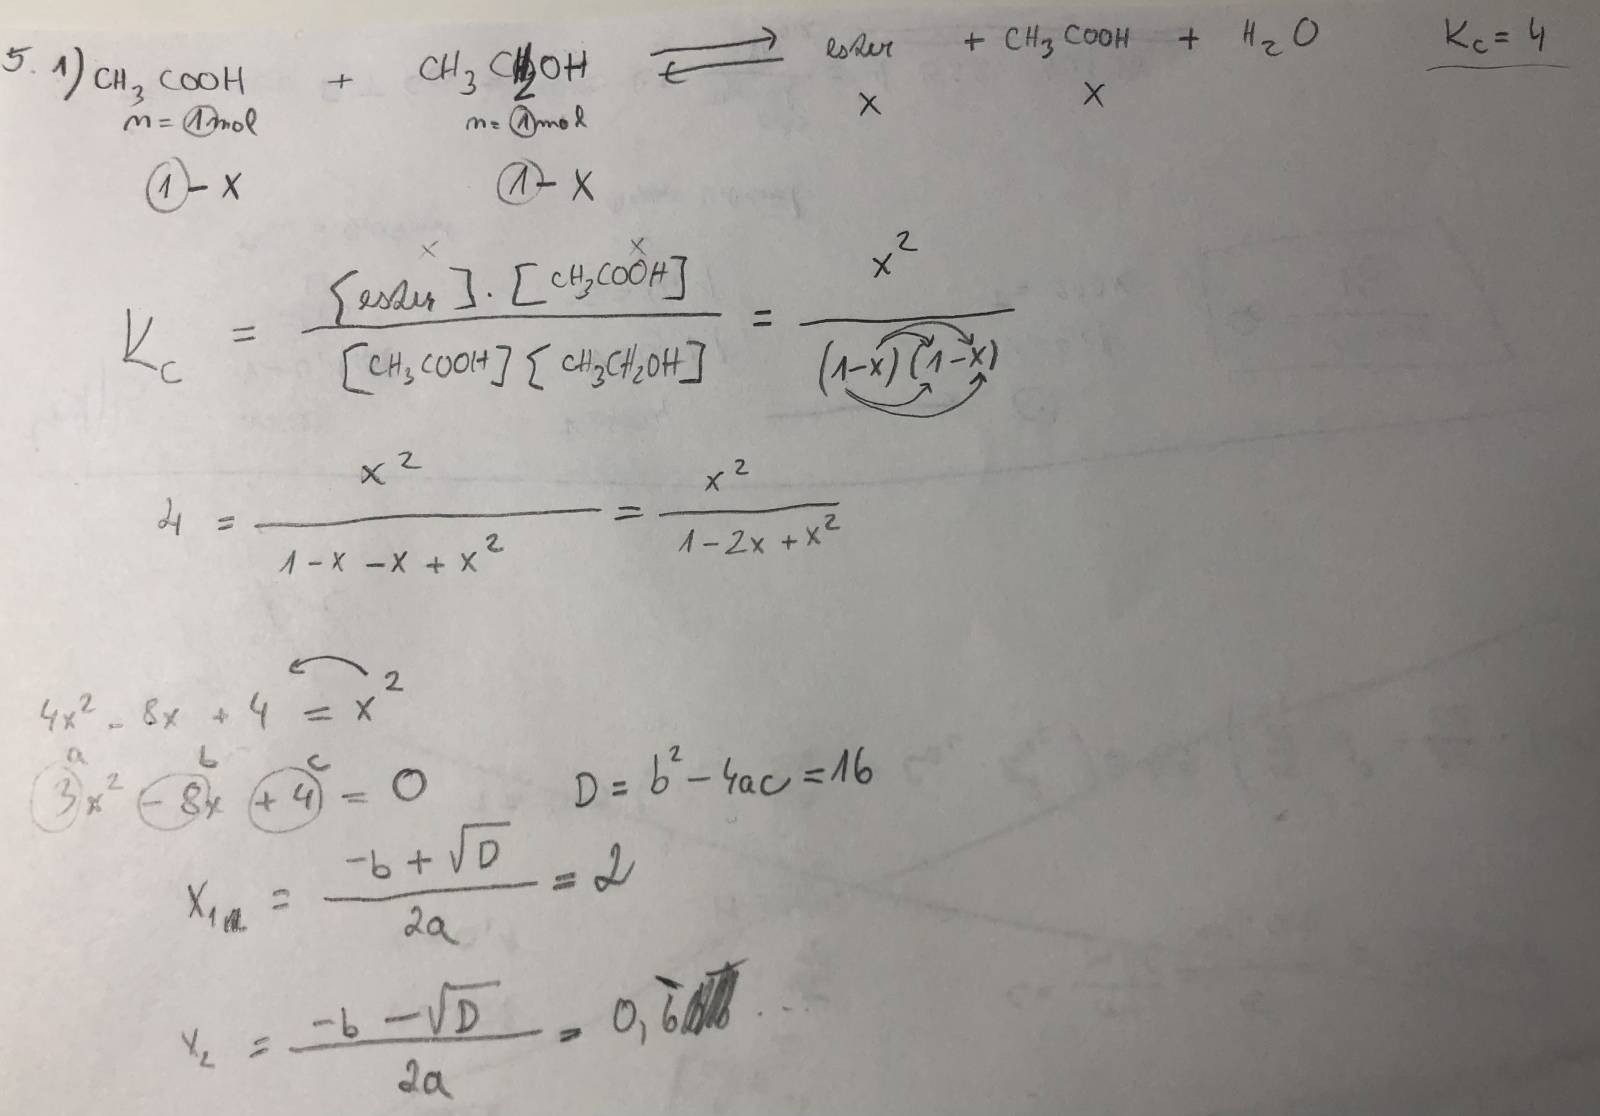 5. 1) CH3 COOH + CH3 CH2OH ⇌ ester + CH3 COOH + H2O Kc = 4
n = 1mol n = 1mol x x
1 - x 1 - x
x x
Kc = [ester] . [CH3COOH] / [CH3COOH] [CH3CH2OH] = x² / (1-x) (1-x)
4 = x² / 1 - x - x + x² = x² / 1 - 2x + x²
4x² - 8x + 4 = x²
a b c
3x² - 8x + 4 = 0 D = b² - 4ac = 16
x1 = -b + √D / 2a = 2
x2 = -b - √D / 2a = 0,6̅ ...